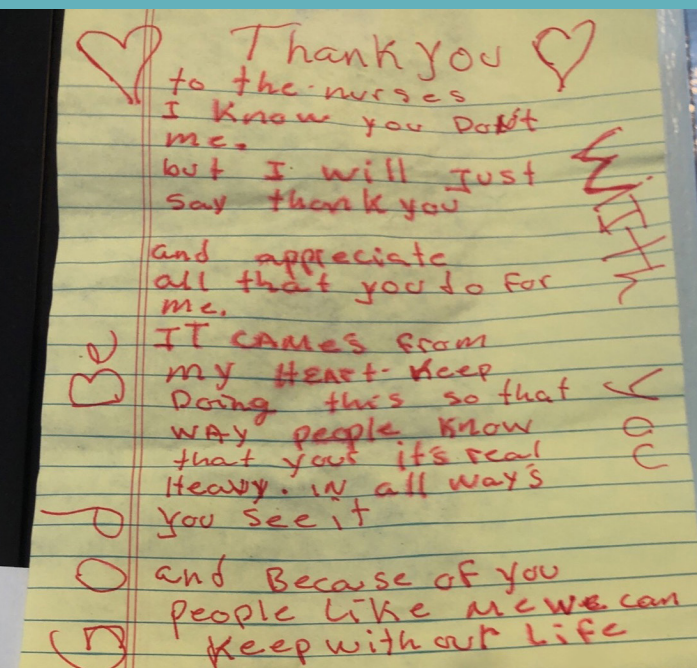 Thank you
to the nurses
I Know you Don't
me.
but I will Just
say thank you
and appreciate
all that you do for
me.
IT CAMES from
my HEART. Keep
Doing this so that
WAY people Know
that your it's real
Heavy. IN all way's
you see it
and Because of you
people Like me we can
Keep with our Life
With
you
Be